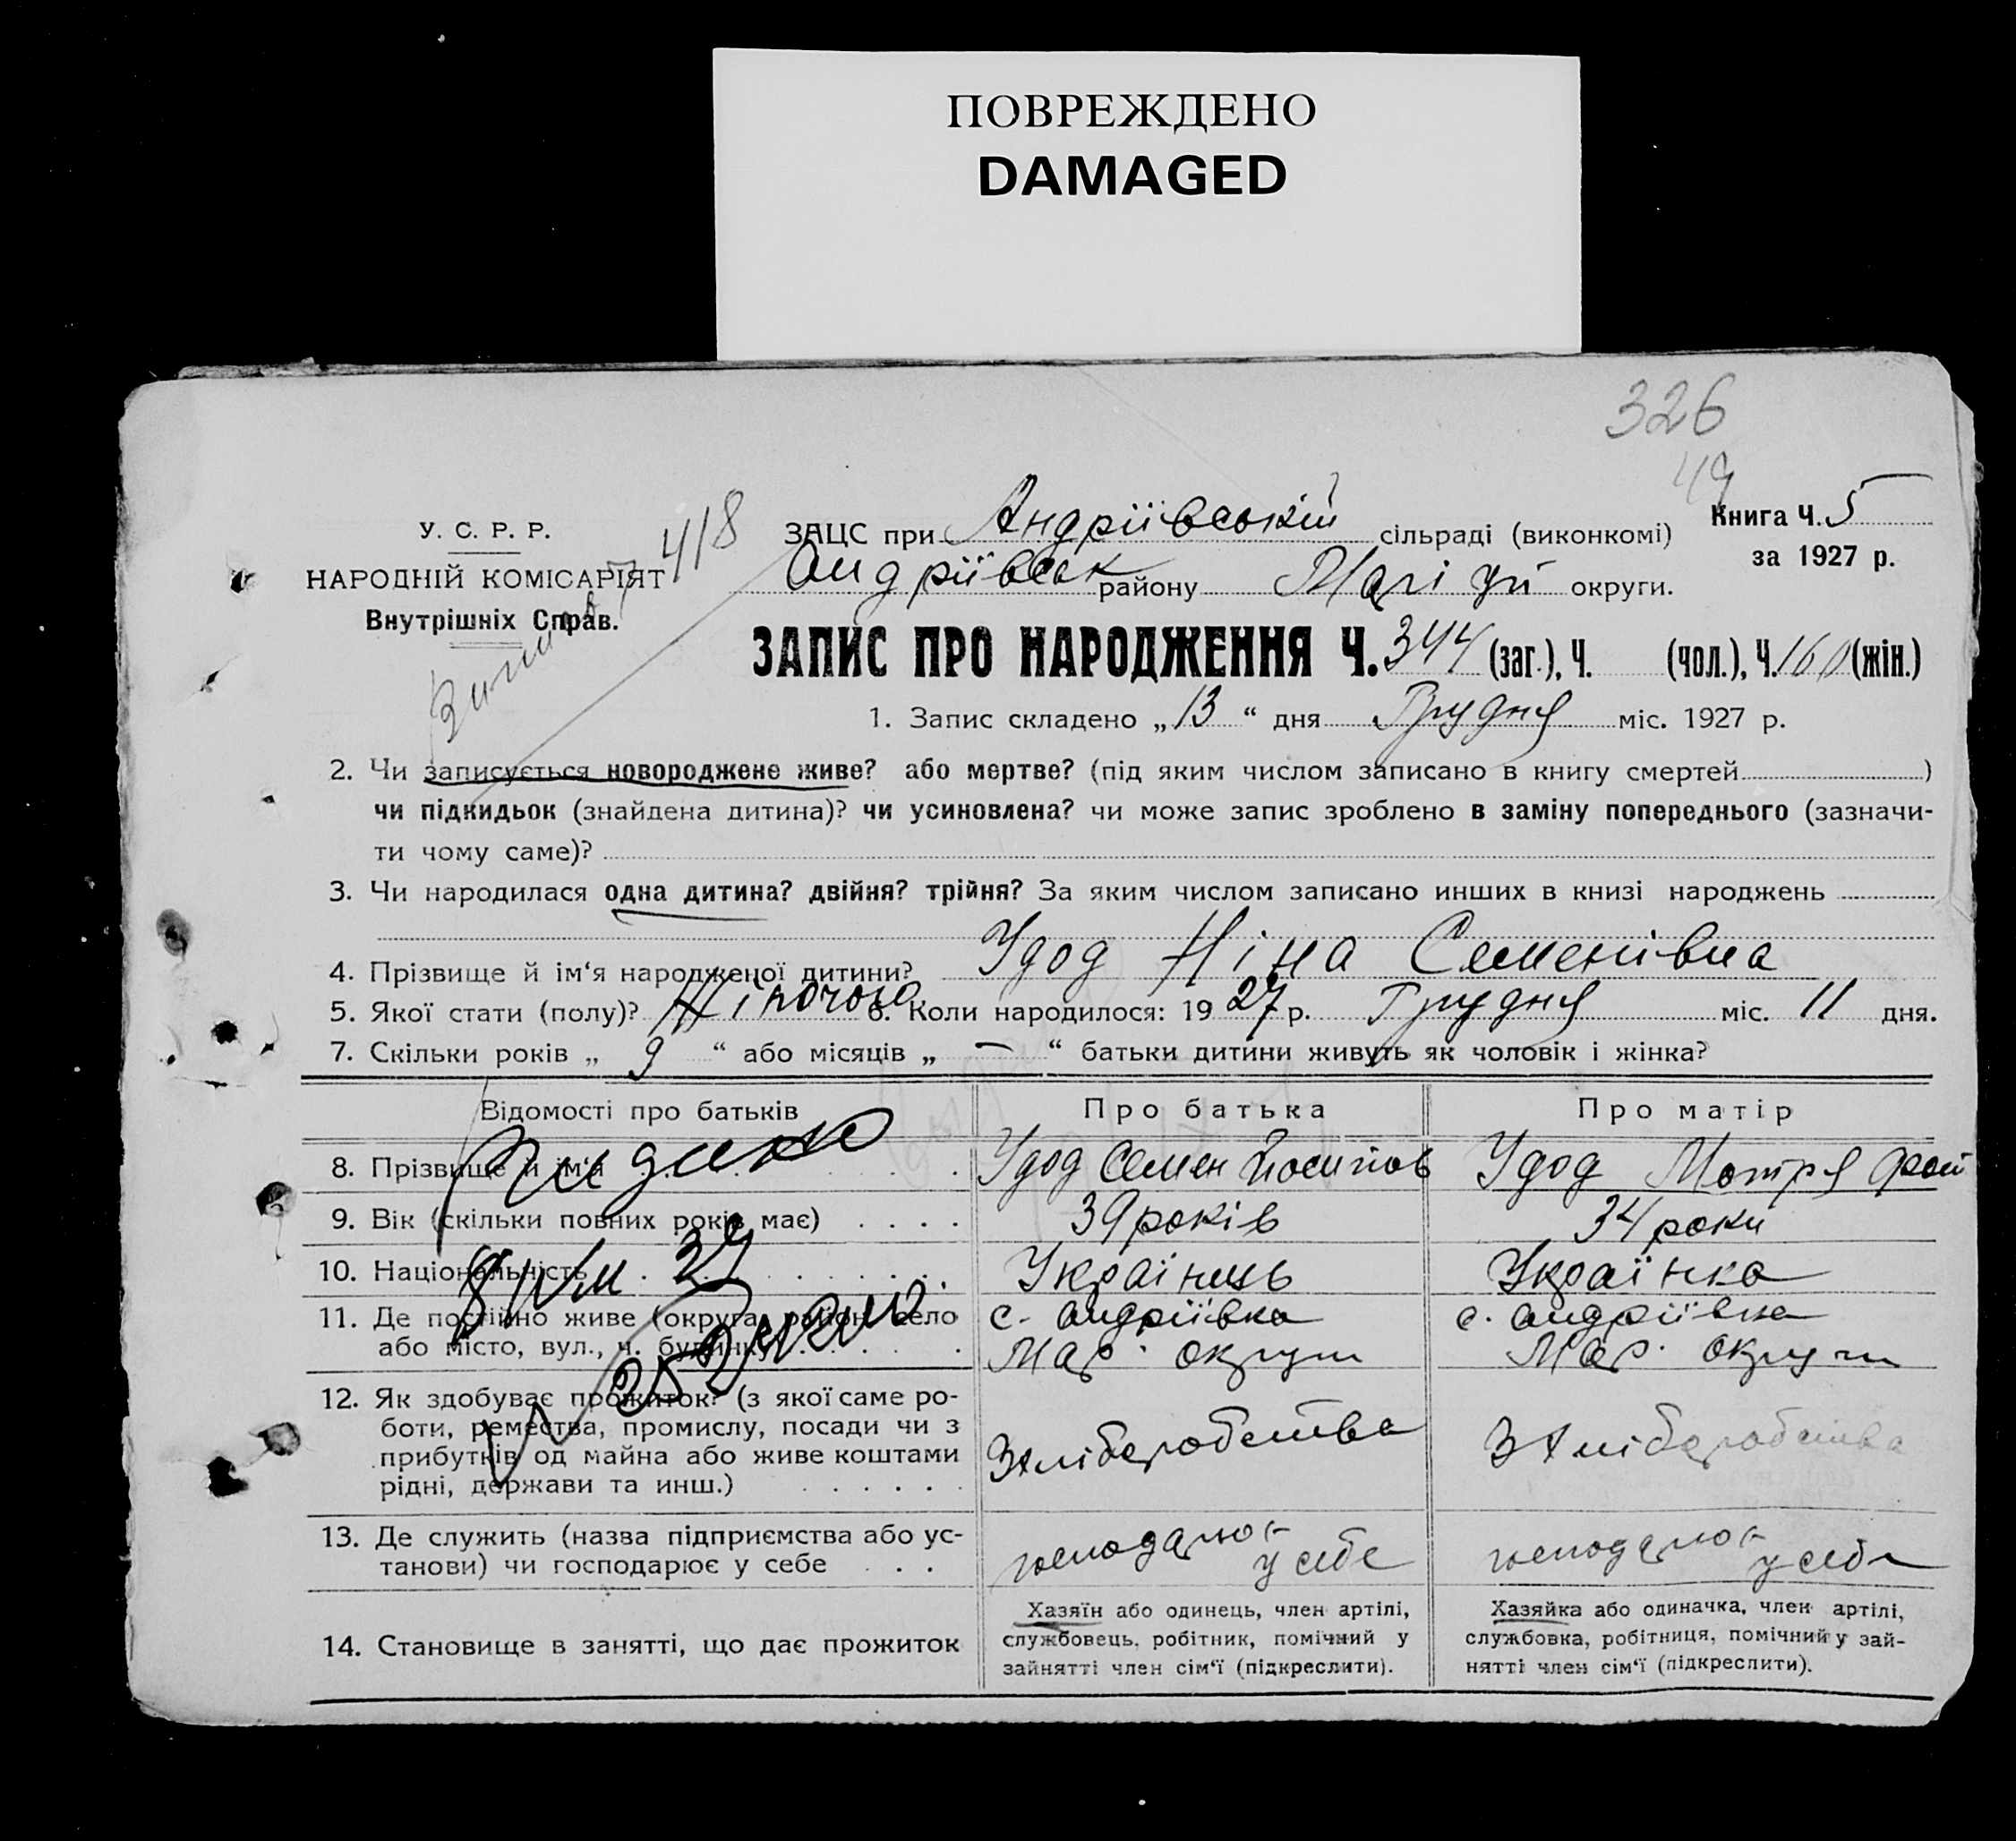 ПОВРЕЖДЕНО
DAMAGED
326
49
У. С. Р. Р.
НАРОДНІЙ КОМІСАРІЯТ
Внутрішніх Справ.
418
ЗАЦС при Андріївській сільраді (виконкомі)
Книга Ч. 5
за 1927 р.
Андріївськ району Маріуп округи.
ЗАПИС ПРО НАРОДЖЕННЯ Ч. 344 (заг.), Ч. (чол.), Ч. 160 (жін.)
1. Запис складено „ 13 “ дня Грудня міс. 1927 р.
2. Чи записується новороджене живе? або мертве? (під яким числом записано в книгу смертей )
чи підкидьок (знайдена дитина)? чи усиновлена? чи може запис зроблено в заміну попереднього (зазначи-
ти чому саме)?
3. Чи народилася одна дитина? двійня? трійня? За яким числом записано инших в книзі народжень
4. Прізвище й ім‘я народженої дитини? Удод Ніна Семенівна
5. Якої стати (полу)? Жіночого 6. Коли народилося: 19 27 р. Грудня міс. 11 дня.
7. Скільки років „ 9 “ або місяців „ — “ батьки дитини живуть як чоловік і жінка?
Відомості про батьків Про батька Про матір
8. Прізвище й ім‘я Удод Семен Йосипов Удод Мотря
9. Вік (скільки повних років має) 39 років 34 роки
10. Національність Українець Українка
11. Де постійно живе (округа, район, село с. Андріївка с. Андріївка
або місто, вул., ч. будинку) Мар. округи Мар. округи
12. Як здобуває прожиток? (з якої саме ро-
боти, ремества, промислу, посади чи з
прибутків од майна або живе коштами
рідні, держави та инш.)
З хліборобства З хліборобства
13. Де служить (назва підприємства або ус-
танови) чи господарює у себе
господарює у себе господарює у себе
14. Становище в занятті, що дає прожиток
Хазяїн або одинець, член артілі,
службовець, робітник, помічний у
зайнятті член сім‘ї (підкреслити).
Хазяйка або одиначка, член артілі,
службовка, робітниця, помічний у зай-
нятті член сім‘ї (підкреслити).